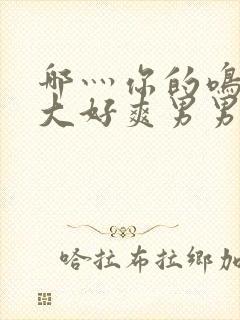 哪灬你的鳴
大好爽男男
哈拉布拉鄉加